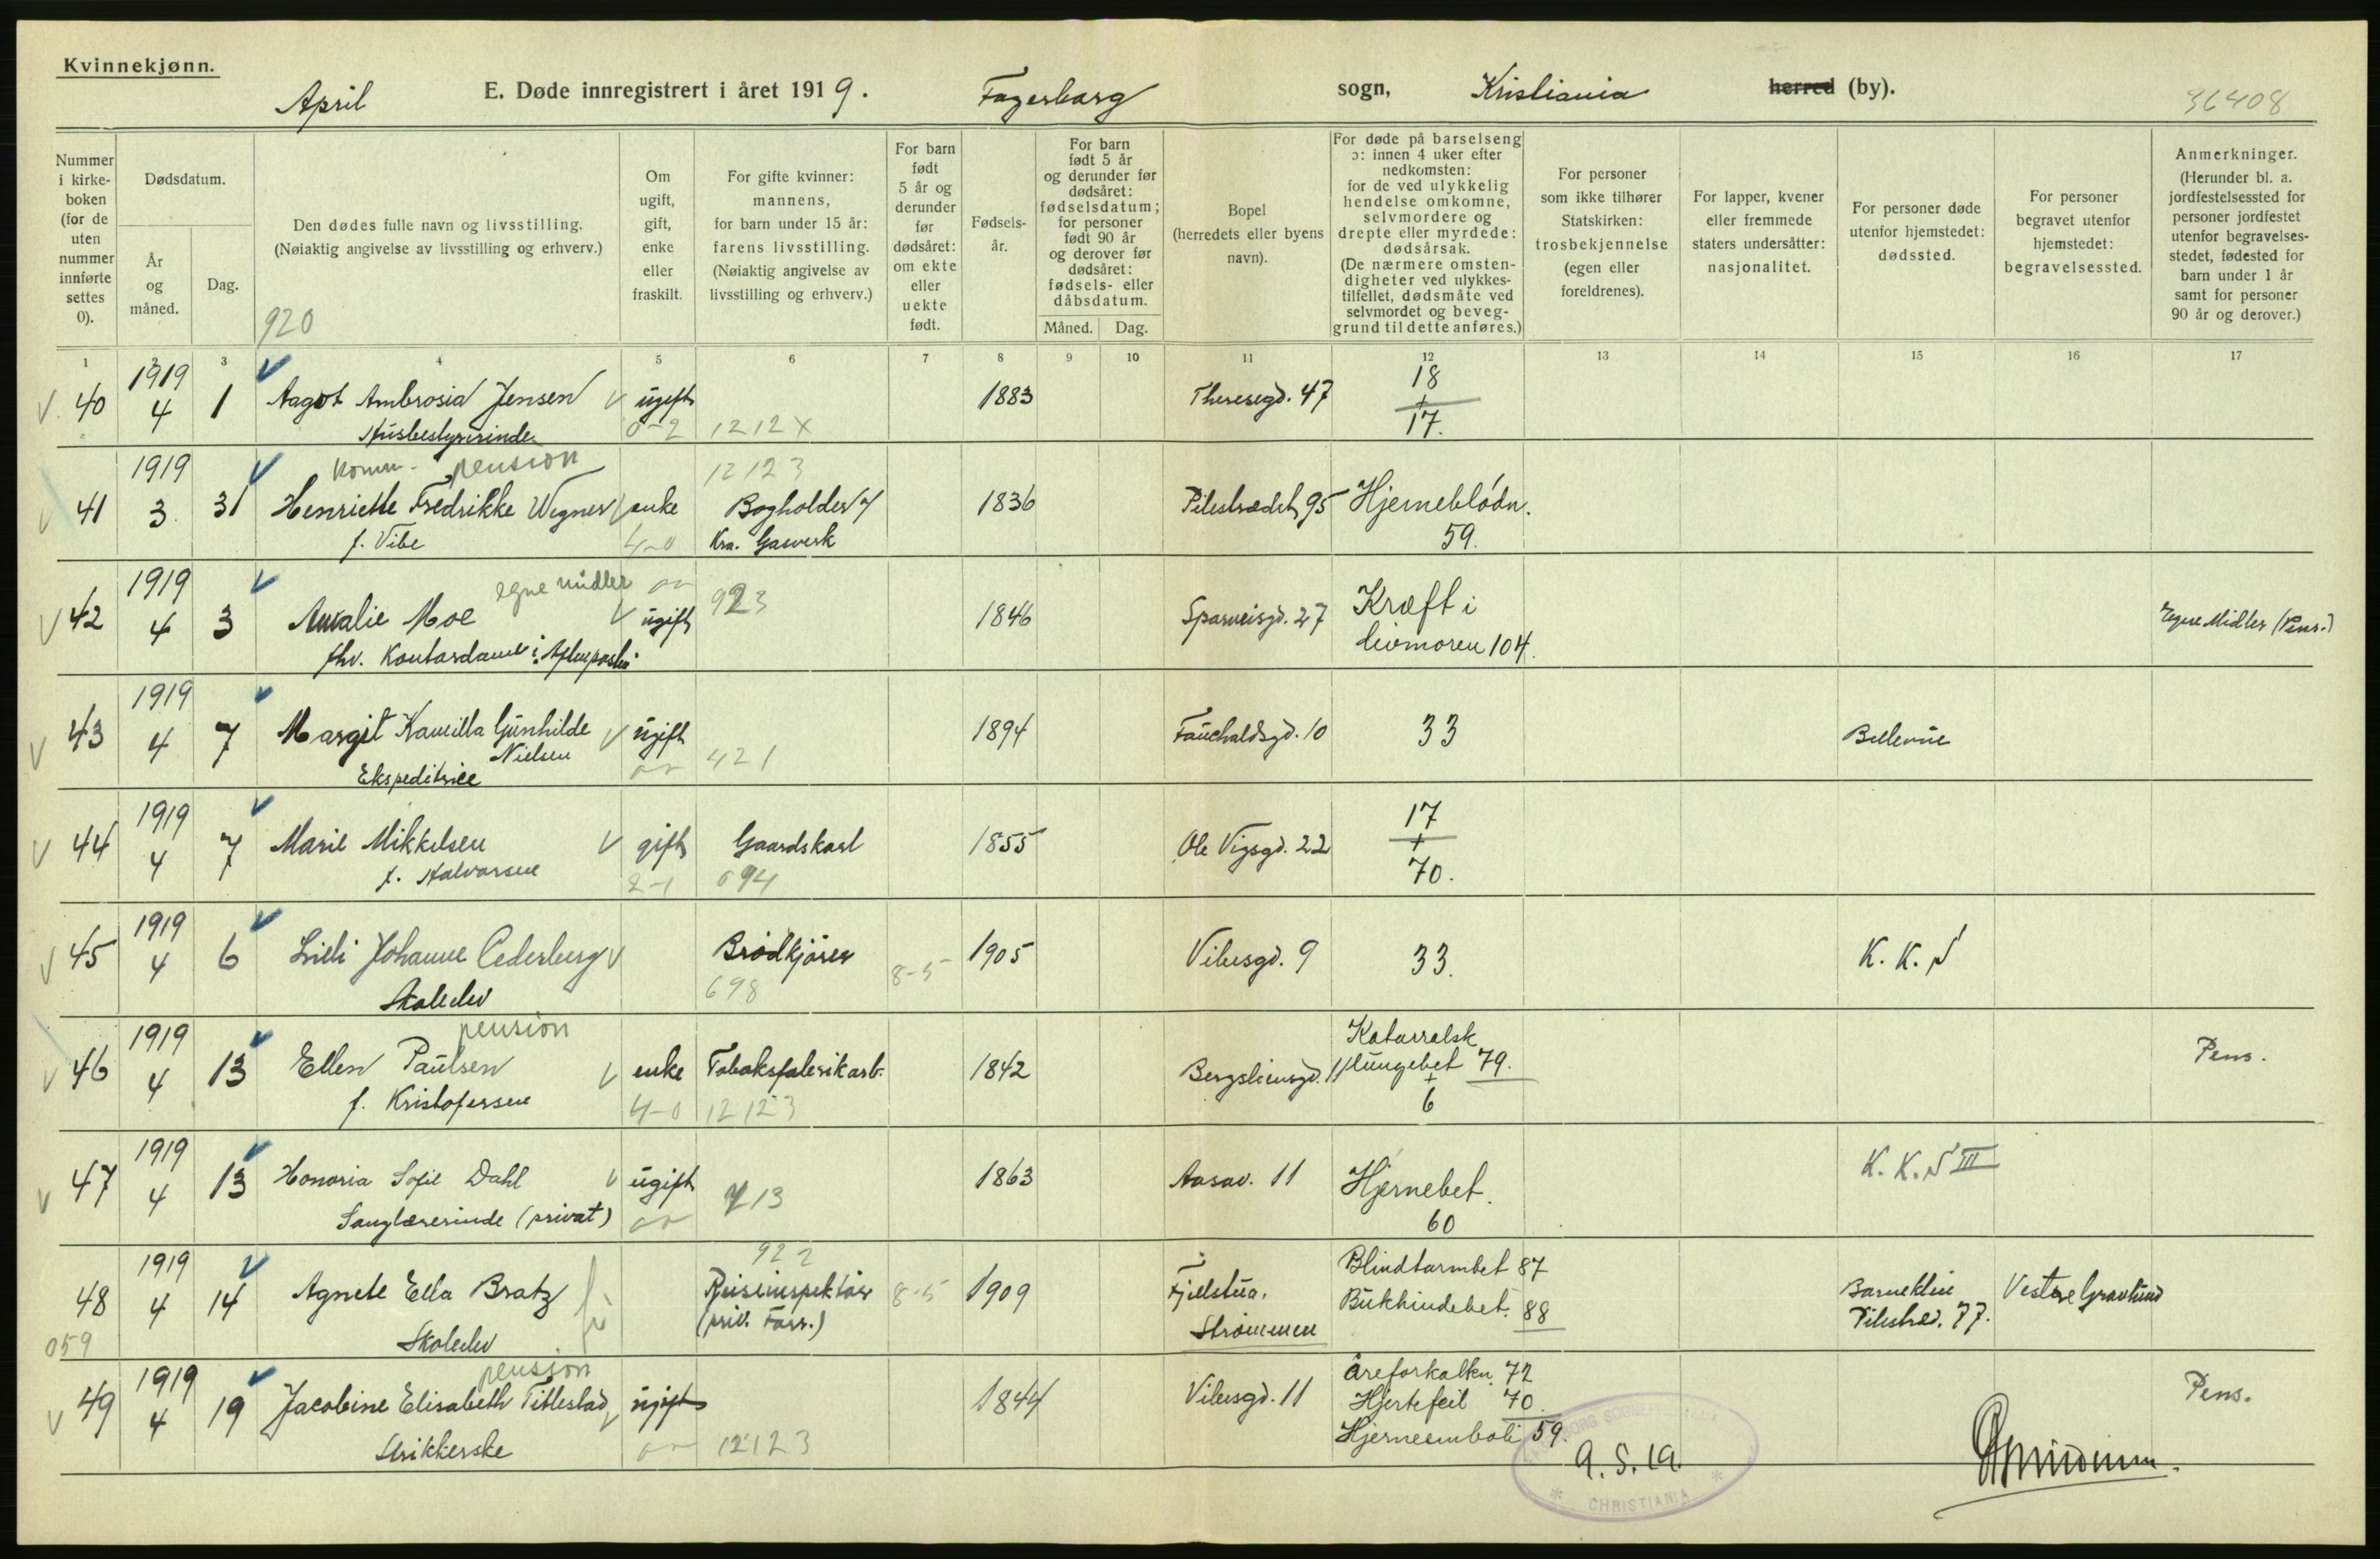 Kvinnekjønn.
April E. Døde innregistrert i året 1919. Fagerborg sogn, Kristiania herred (by).
36408
Nummer i kirkeboken (for de uten nummer innførte settes 0).
Dødsdatum.
År og måned.
Dag.
Den dødes fulle navn og livsstilling.
(Nøiaktig angivelse av livsstilling og erhverv.)
920
Om ugift, gift, enke eller fraskilt.
For gifte kvinner: mannens, for barn under 15 år: farens livsstilling. (Nøiaktig angivelse av livsstilling og erhverv.)
For barn født 5 år og derunder før dødsåret: om ekte eller uekte født.
Fødselsår.
For barn født 5 år og derunder før dødsåret: fødselsdatum; for personer født 90 år og derover før dødsåret: fødsels- eller dåbsdatum.
Måned. Dag.
Bopel (herredets eller byens navn).
For døde på barselseng ɔ: innen 4 uker efter nedkomsten: for de ved ulykkelig hendelse omkomne, selvmordere og drepte eller myrdede: dødsårsak. (De nærmere omstendigheter ved ulykkestilfellet, dødsmåte ved selvmordet og beveggrund til dette anføres.)
For personer som ikke tilhører Statskirken: trosbekjennelse (egen eller foreldrenes).
For lapper, kvener eller fremmede staters undersåtter: nasjonalitet.
For personer døde utenfor hjemstedet: dødssted.
For personer begravet utenfor hjemstedet: begravelsessted.
Anmerkninger. (Herunder bl. a. jordfestelsessted for personer jordfestet utenfor begravelsesstedet, fødested for barn under 1 år samt for personer 90 år og derover.)
1 2 3 4 5 6 7 8 9 10 11 12 13 14 15 16 17
1919
40 4 1 Aagot Ambrosia Jensen ugift 1883 Theresegd. 47 18 + 17.
Husbestyrerinde 0-2 1212 X
1919 komm- pension 12123
41 3 31 Henriette Fredrikke Wegner enke Bogholder v/ 1836 Pilestrædet 95 Hjerneblødn.
f. Vibe 4-0 Kra. Gasverk 59.
1919 egne midler 923
42 4 3 Amalie Moe ugift 1846 Sporveisgd. 27 Kræft i Egne Midler (Pens.)
fhv. Kontordame i Aftenposten livmoren 104.
1919
43 4 7 Margit Kamilla Gunhilde ugift 1894 Fauchaldsgd. 10 33 Bellevue
Nielsen 421
Ekspeditrice
1919
44 4 7 Marie Mikkelsen gift Gaardskarl 1855 Ole Vigsgd. 22 17 + 70.
f. Halvorsen 2-1 694
1919
45 4 6 Lilli Johanne Cederberg Brødkjører 8-5 1905 Vibesgd. 9 33. K. K. S
Skoleelev 698
1919 pension Katarralsk
46 4 13 Ellen Paulsen enke Tobaksfabrikarb. 1842 Bergsliensgd. 11 lungebet 79. + 6 Pens.
f. Kristofersen 4-0 12123
1919
47 4 13 Honoria Sofie Dahl ugift 713 1863 Aasav. 11 Hjernebet. K. K. S III
Sanglærerinde (privat) 60
1919 922 Blindtarmbet 87
48 4 14 Agnete Ella Bratz Reiseinspektør 8-5 1909 Fjelstua, Bukhindebet. 88 Barneklin Vestre Gravlund
059 Skoleelev (priv. Forr.) Strømmen Pilestred. 77.
1919 pension Åreforkalkn. 72
49 4 19 Jacobine Elisabeth Titlestad ugift 1844 Vibesgd. 11 Hjertefeil 70. Pens.
Strikkerske 12123 Hjerneemboli 59.
9.5.19
CHRISTIANIA